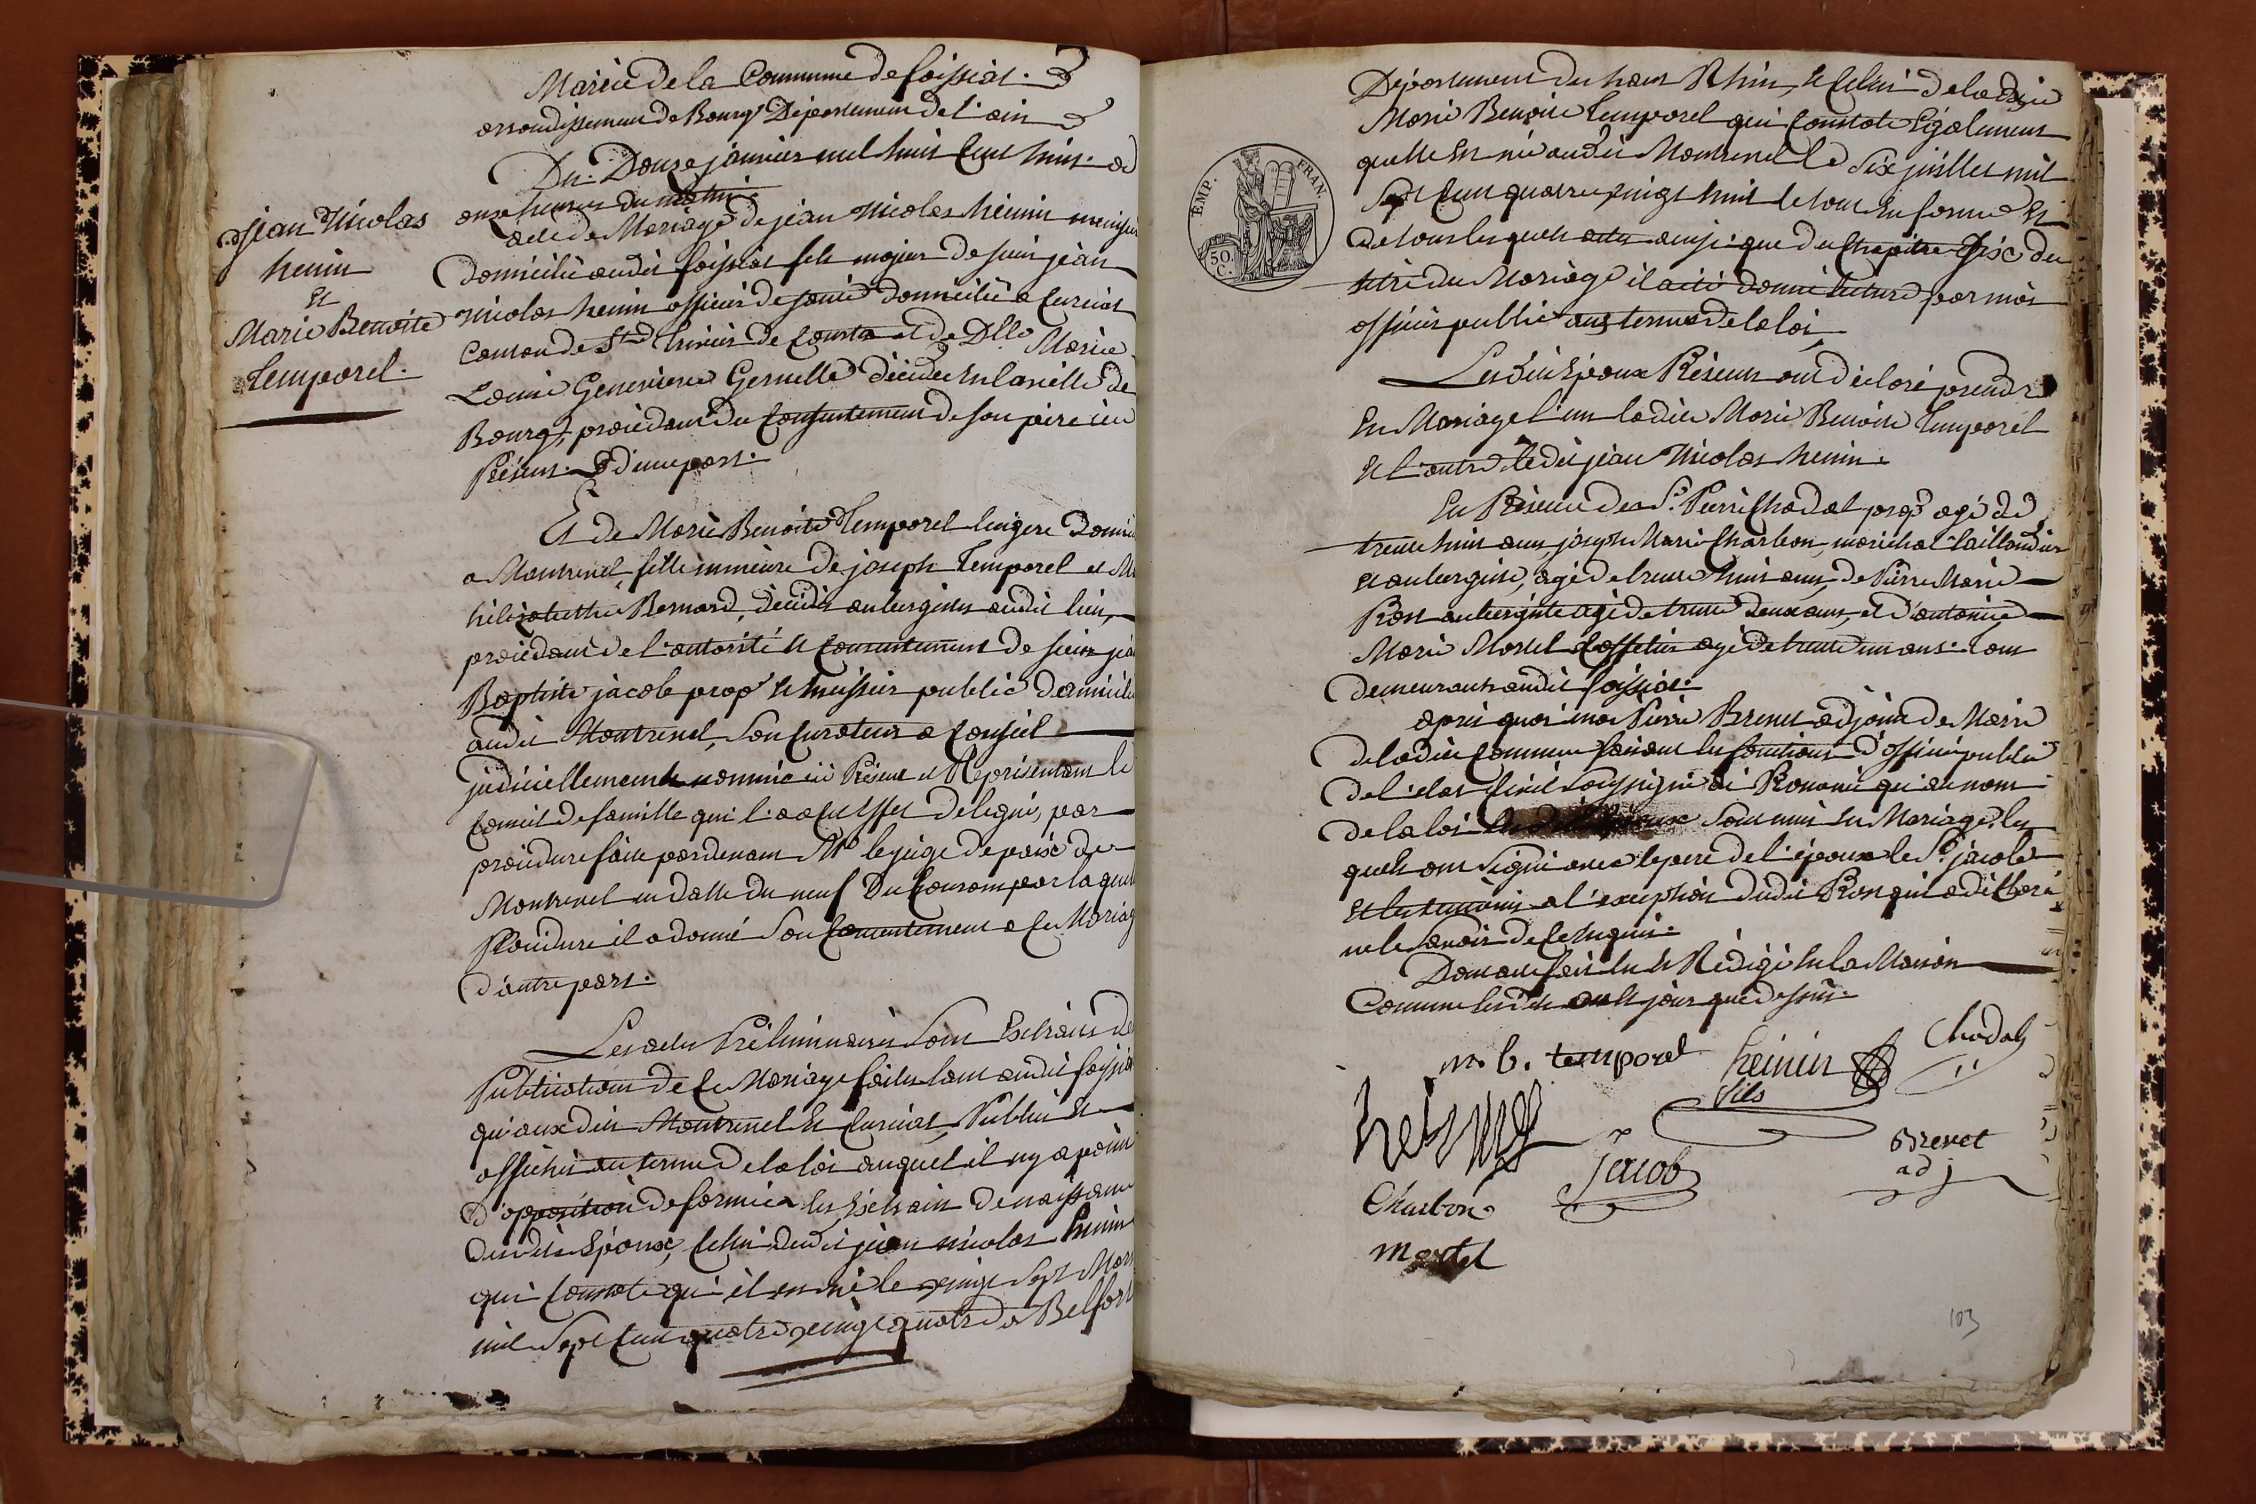 Mairie de la Commune de foissiat.
arrondissement de Bourg Département de l'ain
Du Douze janvier mil huit Cent huit. a
onze heures du matin
acte de Mariage de jean Nicolas hénin
domicilié audit foissiat fils majeur de sieur jean
Nicolas henin officier de santé domicilié a Curciat
Canton de St trivier de Courtes et de Dlle Marie
Louise Genevieve Gernelle décédée En la ville de
Bourg, procédant du Consentement de son père ici
Présent. d'une part.
jean Nicolas
henin
Et
Marie Benoite
temporel.
Et de Marie Benoite temporel lingere Domici
a Montrevel, fille mineure de joseph temporel et M
Bernard, décédés aubergistes audit lieu,
procédant de l'autorité et Consentement de sieur jea
Baptiste jacob prop.re et huissier public domicilié
audit Montrevel, son Curateur a Conseil
judiciellement nommé ici Présent et Représentant le
Conseil de famille qui l'a a Cet Effet délégué, par
procédure faite pardevant Mr le juge de paix de
Montrevel en datte du neuf Du Courant par laquel
Procédure il a donné son Consentement a Ce Mariag
d'autre part.
Les actes Préliminaires sont Extraits de
Publications de Ce Mariage faites tant audit foissiat
qu'auxdits Montrevel Et Curciat, Publiés Et
affichés au terme de la loi auquel il ny a point
d'opposition de formée les Extraits de naissance
desdits Epoux, Celui dudit jean nicolas henin
qui Constate qu'il est né le vingt sept Mars
mil sept Cent quatre vingt quatre a Belfort
EMP. FRAN.
50. C.
Département du haut Rhin, et Celui de ladite
Marie Benoite temporel qui Constate Egalement
quelle Est née audit Montrevel le six juillet mil
sept Cent quatre vingt huit le tout En forme Et
de tous lesquels actes ainsi que du Chapitre six du
titre du Mariage il a été donné lecture par moi
officier public aux termes de la loi,
Lesdits Epoux Présents ont déclaré prendre
En Mariage l'un ladite Marie Benoite temporel
Et l'autre ledit jean Nicolas henin.
En Présence des Sr Pierre Chadal prop.re agé de
trente huit ans, joseph Marie Charbon, maréchal taillandier
et aubergiste, agé de trente huit ans, de Pierre Marie
Ron aubergiste agé de trente deux ans, et d'antoine
Marie Martel Caffetier agé de trente un ans. tous
demeurants audit foissiat.
après quoi moi Pierre Brevet adjoint de Maire
de ladite Commune faisant les fonctions d'officier public
de l'état Civil soussigné ai Prononcé qu'au nom
de la loi sont unis En Mariage. les
quels ont signé avec le pere de l'époux le Sr jacob
Et les temoins a l'exception dudit Ron qui a déclaré
ne le savoir de Ce Enquis.
Dont acte fait lu et Rédigé En la Maison
Commune lesdits an et jour que dessus.
m. b. temporel
heinin
fils
Chadal
heinin
jacob
Brevet
adj
Charbon
martel
103